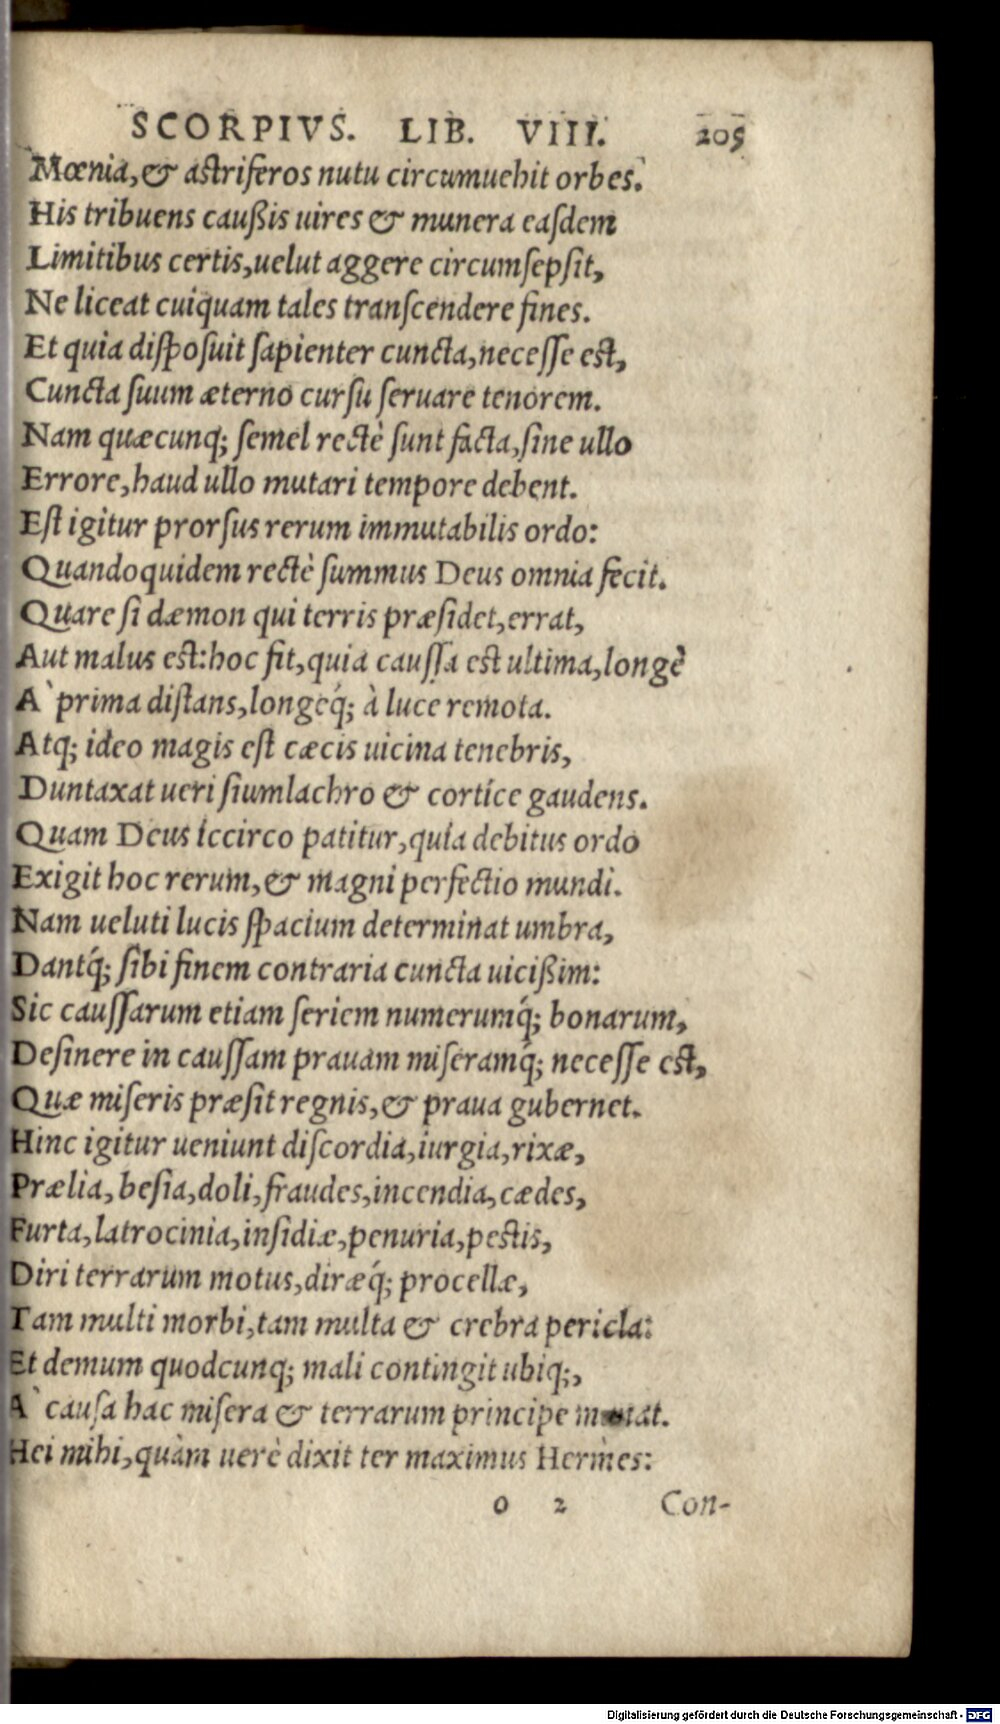 SCORPIVS. LIB. VIII. 205
Mœnia, & astriferos nutu circumuehit orbes.
His tribuens caußis uires & munera easdem
Limitibus certis, uelut aggere circumsepsit,
Ne liceat cuiquam tales transcendere fines.
Et quia disposuit sapienter cuncta, necesse est,
Cuncta suum æterno cursu seruare tenorem.
Nam quæcunq; semel rectè sunt facta, sine ullo
Errore, haud ullo mutari tempore debent.
Est igitur prorsus rerum immutabilis ordo:
Quandoquidem rectè summus Deus omnia fecit.
Quare si dæmon qui terris præsidet, errat,
Aut malus est: hoc fit, quia caussa est ultima, longè
A` prima distans, longeq́; à luce remota.
Atq; ideo magis est cæcis uicina tenebris,
Duntaxat ueri siumlachro & cortice gaudens.
Quam Deus iccirco patitur, quia debitus ordo
Exigit hoc rerum, & magni perfectio mundi.
Nam ueluti lucis spacium determinat umbra,
Dantq́; sibi finem contraria cuncta uicißim:
Sic caussarum etiam seriem numerumq́; bonarum,
Desinere in caussam prauam miseramq́; necesse est,
Quæ miseris præsit regnis, & praua gubernet.
Hinc igitur ueniunt discordia, iurgia, rixæ,
Prælia, besia, doli, fraudes, incendia, cædes,
Furta, latrocinia, insidiæ, penuria, pestis,
Diri terrarum motus, diræq́; procellæ,
Tam multi morbi, tam multa & crebra pericla:
Et demum quodcunq; mali contingit ubiq;,
A` causa hac misera & terrarum principe
Hei mihi, quàm uerè dixit ter maximus Hermes:
o 2 Con-
Digitalisierung gefördert durch die Deutsche Forschungsgemeinschaft - DFG